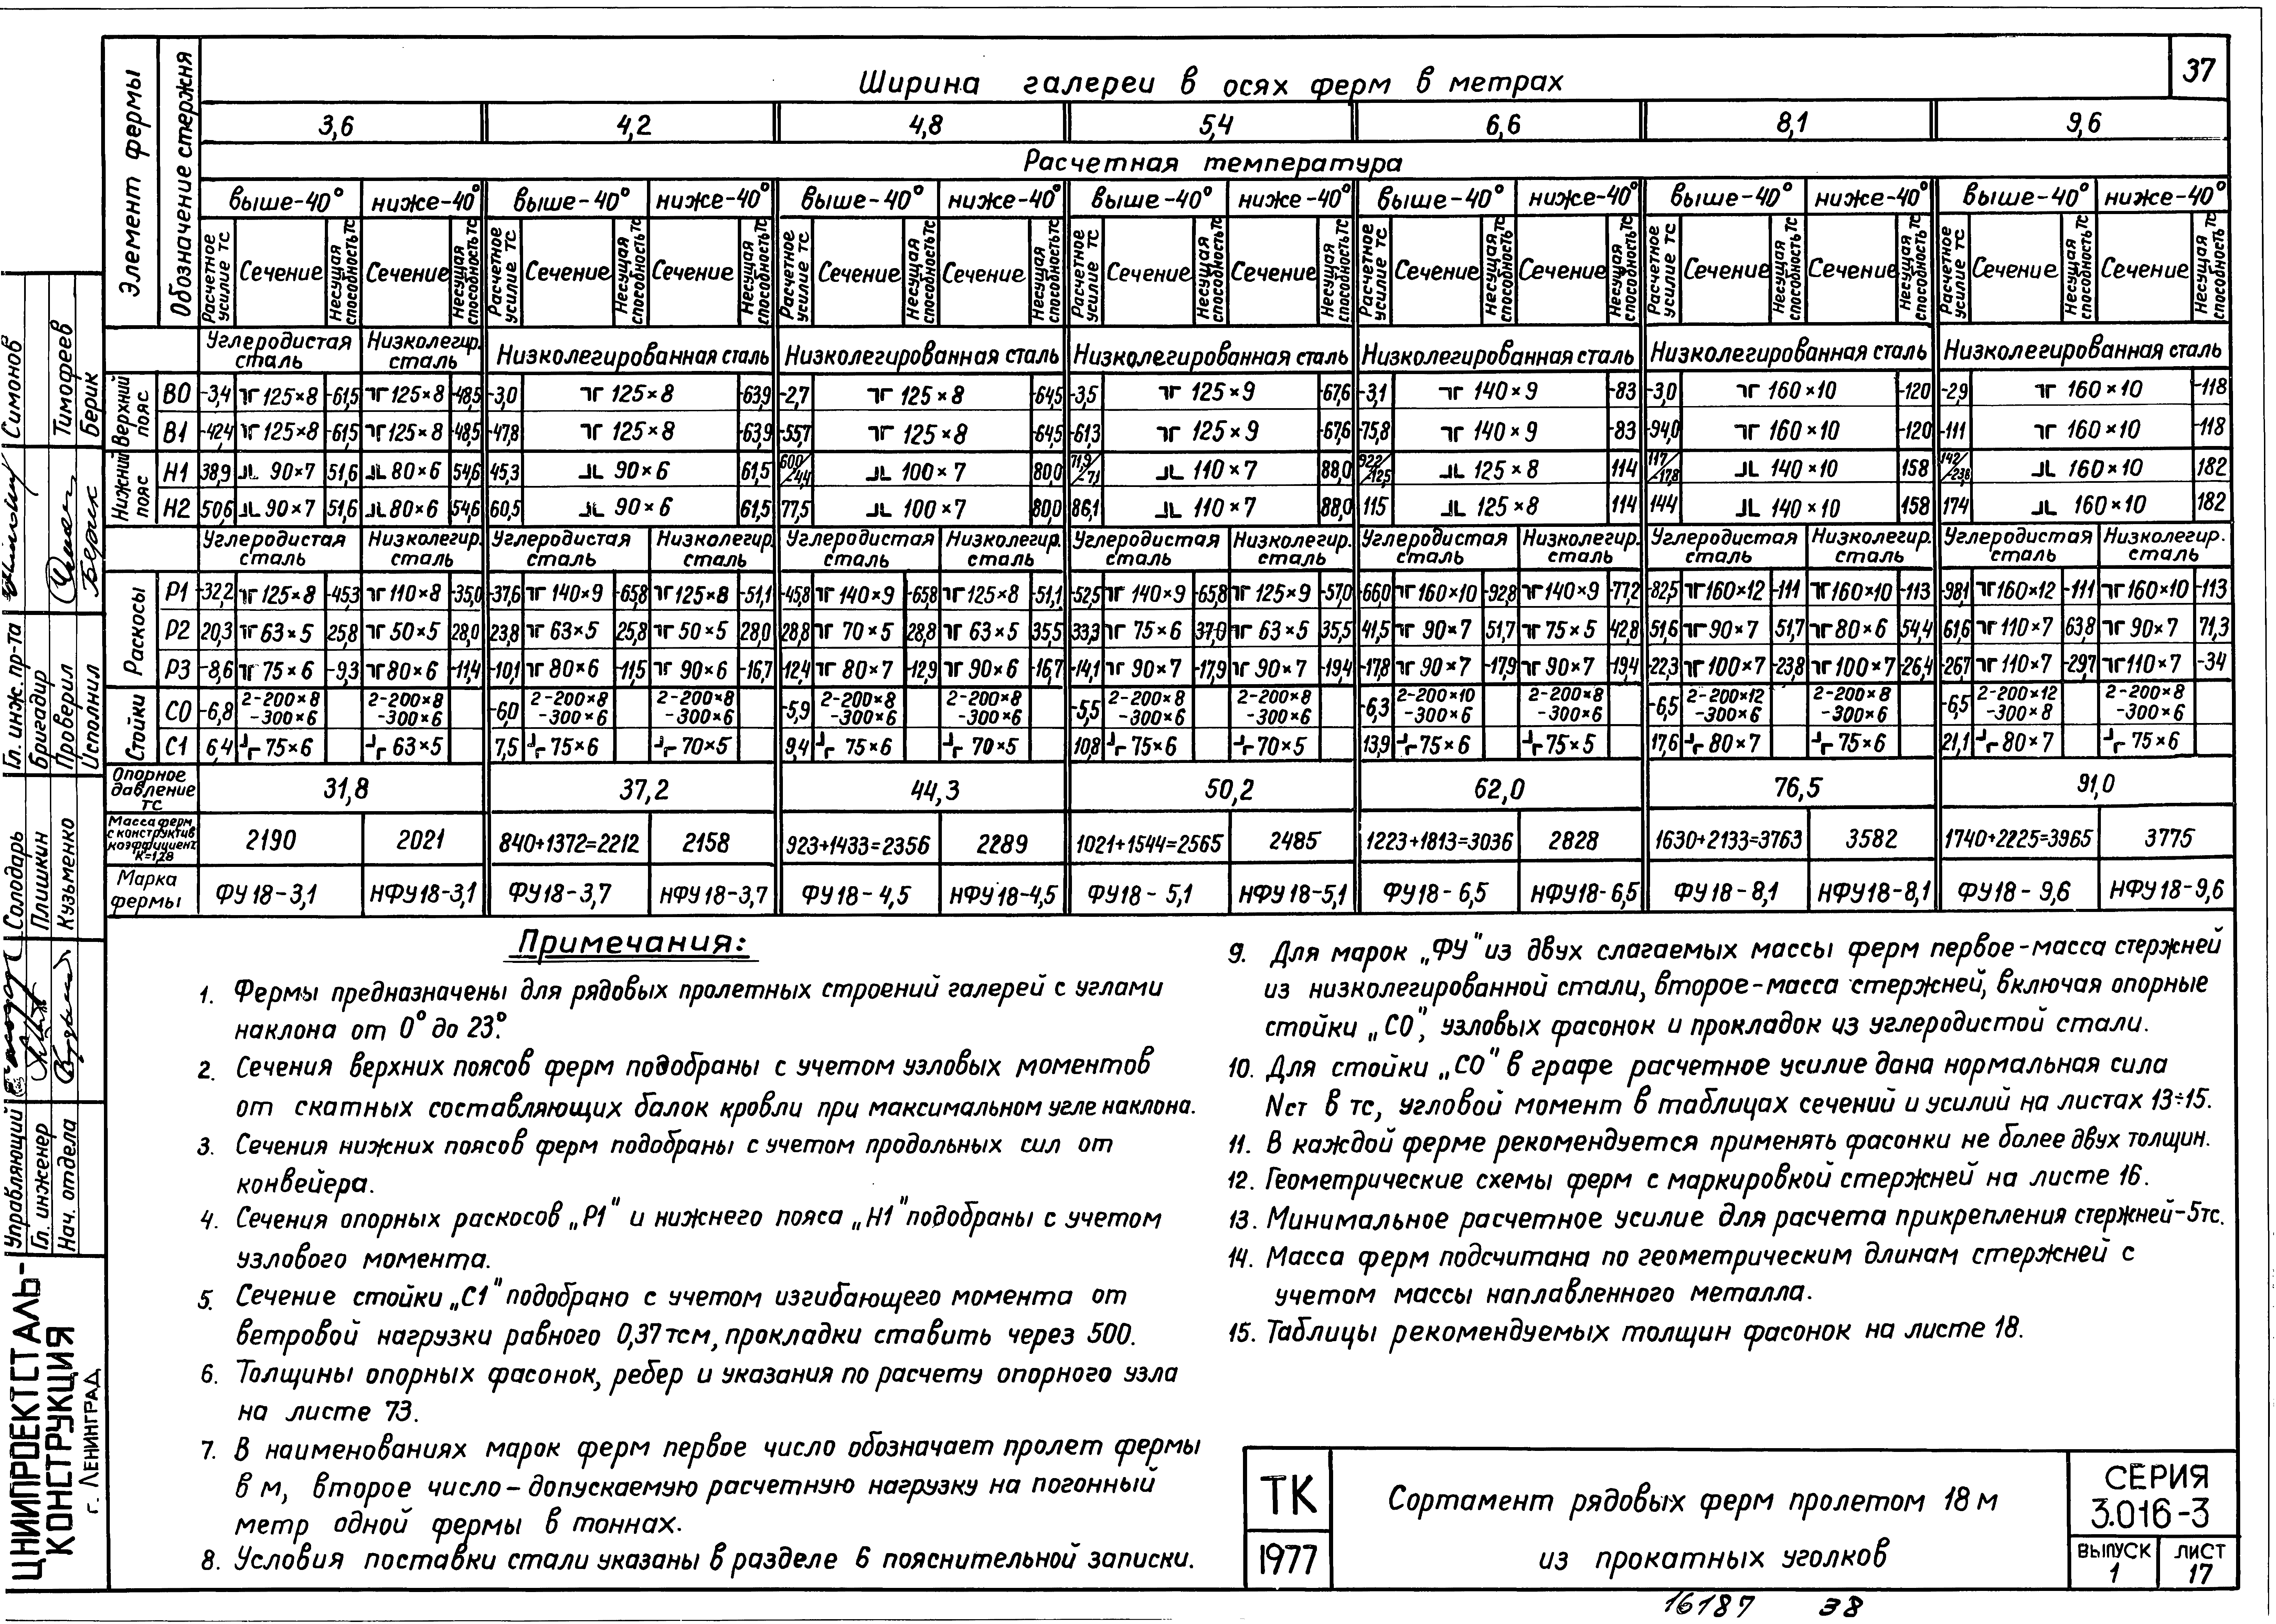 37
Ширина галереи в осях ферм в метрах
Элемент фермы
Обозначение стержня
3,6 4,2 4,8 5,4 6,6 8,1 9,6
Расчетная температура
выше-40° ниже-40° выше-40° ниже-40° выше-40° ниже-40° выше-40° ниже-40° выше-40° ниже-40° выше-40° ниже-40° выше-40° ниже-40°
Расчетное усилие тс Сечение Несущая способность тс Сечение Несущая способность тс Расчетное усилие тс Сечение Несущая способность тс Сечение Несущая способность тс Расчетное усилие тс Сечение Несущая способность тс Сечение Несущая способность тс Расчетное усилие тс Сечение Несущая способность тс Сечение Несущая способность тс Расчетное усилие тс Сечение Несущая способность тс Сечение Несущая способность тс Расчетное усилие тс Сечение Несущая способность тс Сечение Несущая способность тс Расчетное усилие тс Сечение Несущая способность тс Сечение Несущая способность тс
Углеродистая сталь Низколегир. сталь Низколегированная сталь Низколегированная сталь Низколегированная сталь Низколегированная сталь Низколегированная сталь Низколегированная сталь
Верхний пояс
В0 -3,4 125×8 -61,5 125×8 -48,5 -3,0 125×8 -63,9 -2,7 125×8 -64,5 -3,5 125×9 -67,6 -3,1 140×9 -83 -3,0 160×10 -120 -2,9 160×10 -118
В1 -42,4 125×8 -61,5 125×8 -48,5 -47,8 125×8 -63,9 -55,7 125×8 -64,5 -61,3 125×9 -67,6 -75,8 140×9 -83 -94,0 160×10 -120 -111 160×10 -118
Нижний пояс
Н1 38,9 90×7 51,6 80×6 54,6 45,3 90×6 61,5 60,0/-4,4 100×7 80,0 71,9/-7,1 110×7 88,0 92,2/-12,5 125×8 114 117/-17,8 140×10 158 142/-23,8 160×10 182
Н2 50,6 90×7 51,6 80×6 54,6 60,5 90×6 61,5 77,5 100×7 80,0 86,1 110×7 88,0 115 125×8 114 144 140×10 158 174 160×10 182
Углеродистая сталь Низколегир. сталь Углеродистая сталь Низколегир. сталь Углеродистая сталь Низколегир. сталь Углеродистая сталь Низколегир. сталь Углеродистая сталь Низколегир. сталь Углеродистая сталь Низколегир. сталь Углеродистая сталь Низколегир. сталь
Раскосы
Р1 -32,2 125×8 -45,3 110×8 -35,0 -37,6 140×9 -65,8 125×8 -51,1 -45,8 140×9 -65,8 125×8 -51,1 -52,5 140×9 -65,8 125×9 -57,0 -66,0 160×10 -92,8 140×9 -77,2 -82,5 160×12 -111 160×10 -113 -98,1 160×12 -111 160×10 -113
Р2 20,3 63×5 25,8 50×5 28,0 23,8 63×5 25,8 50×5 28,0 28,8 70×5 28,8 63×5 35,5 33,3 75×6 37,0 63×5 35,5 41,5 90×7 51,7 75×5 42,8 51,6 90×7 51,7 80×6 54,4 61,6 110×7 63,8 90×7 71,3
Р3 -8,6 75×6 -9,3 80×6 -11,4 -10,1 80×6 -11,5 90×6 -16,7 -12,4 80×7 -12,9 90×6 -16,7 -14,1 90×7 -17,9 90×7 -19,4 -17,8 90×7 -17,9 90×7 -19,4 -22,3 100×7 -23,8 100×7 -26,4 -26,7 110×7 -29,7 110×7 -34
Стойки
С0 -6,8 2-200×8 -300×6 2-200×8 -300×6 -6,0 2-200×8 -300×6 2-200×8 -300×6 -5,9 2-200×8 -300×6 2-200×8 -300×6 -5,5 2-200×8 -300×6 2-200×8 -300×6 -6,3 2-200×10 -300×6 2-200×8 -300×6 -6,5 2-200×12 -300×6 2-200×8 -300×6 -6,5 2-200×12 -300×8 2-200×8 -300×6
С1 6,4 75×6 63×5 7,5 75×6 70×5 9,4 75×6 70×5 10,8 75×6 70×5 13,9 75×6 75×5 17,6 80×7 75×6 21,1 80×7 75×6
Опорное давление тс 31,8 37,2 44,3 50,2 62,0 76,5 91,0
Масса ферм с конструктив. коэффициент. К=1,28 2190 2021 840+1372=2212 2158 923+1433=2356 2289 1021+1544=2565 2485 1223+1813=3036 2828 1630+2133=3763 3582 1740+2225=3965 3775
Марка фермы ФУ18-3,1 НФУ18-3,1 ФУ18-3,7 НФУ18-3,7 ФУ18-4,5 НФУ18-4,5 ФУ18-5,1 НФУ18-5,1 ФУ18-6,5 НФУ18-6,5 ФУ18-8,1 НФУ18-8,1 ФУ18-9,6 НФУ18-9,6
Примечания:
1. Фермы предназначены для рядовых пролетных строений галерей с углами
наклона от 0° до 23°.
2. Сечения верхних поясов ферм подобраны с учетом узловых моментов
от скатных составляющих балок кровли при максимальном угле наклона.
3. Сечения нижних поясов ферм подобраны с учетом продольных сил от
конвейера.
4. Сечения опорных раскосов „Р1" и нижнего пояса „Н1" подобраны с учетом
узлового момента.
5. Сечение стойки „С1" подобрано с учетом изгибающего момента от
ветровой нагрузки равного 0,37 тсм, прокладки ставить через 500.
6. Толщины опорных фасонок, ребер и указания по расчету опорного узла
на листе 73.
7. В наименованиях марок ферм первое число обозначает пролет фермы
в м, второе число - допускаемую расчетную нагрузку на погонный
метр одной фермы в тоннах.
8. Условия поставки стали указаны в разделе 6 пояснительной записки.
9. Для марок „ФУ" из двух слагаемых массы ферм первое - масса стержней
из низколегированной стали, второе - масса стержней, включая опорные
стойки „С0", узловых фасонок и прокладок из углеродистой стали.
10. Для стойки „С0" в графе расчетное усилие дана нормальная сила
Nст в тс, угловой момент в таблицах сечений и усилий на листах 13÷15.
11. В каждой ферме рекомендуется применять фасонки не более двух толщин.
12. Геометрические схемы ферм с маркировкой стержней на листе 16.
13. Минимальное расчетное усилие для расчета прикрепления стержней - 5тс.
14. Масса ферм подсчитана по геометрическим длинам стержней с
учетом массы наплавленного металла.
15. Таблицы рекомендуемых толщин фасонок на листе 18.
ТК
1977
Сортамент рядовых ферм пролетом 18 м
из прокатных уголков
СЕРИЯ
3.016-3
ВЫПУСК
1
ЛИСТ
17
16187 38
ЦНИИПРОЕКТСТАЛЬ-
КОНСТРУКЦИЯ
г. ЛЕНИНГРАД
Управляющий Солодарь
Гл. инженер Плишкин
Нач. отдела Кузьменко
Гл. инж. пр-та Симонов
Бригадир
Проверил Тимофеев
Исполнил Берик Берик